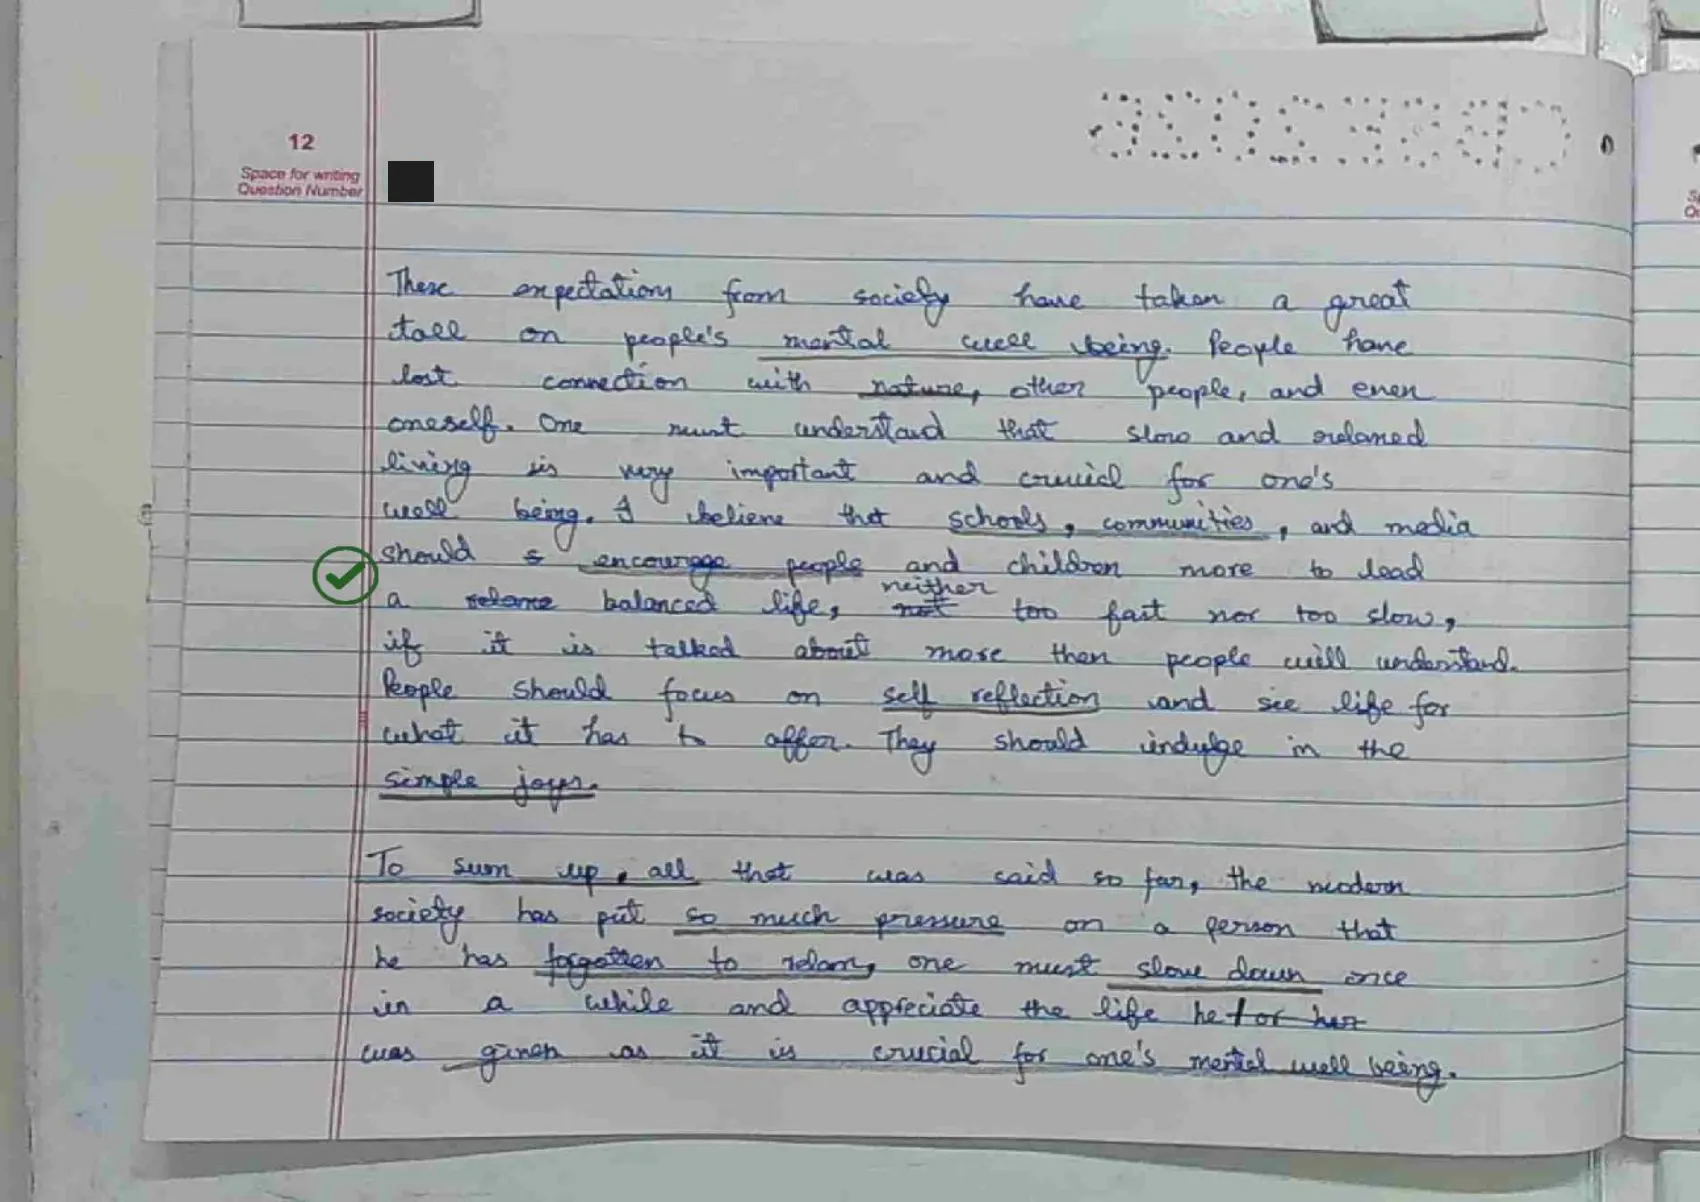 12
Space for writing
Question Number
These expectations from society have taken a great
toll on people's mental well being. People have
lost connection with nature, other people, and even
oneself. One must understand that slow and relaxed
living is very important and crucial for one's
well being. I believe that schools, communities, and media
should encourage people and children more to lead
neither
a relaxe balanced life, not too fast nor too slow,
if it is talked about more then people will understand.
People should focus on self reflection and see life for
what it has to offer. They should indulge in the
simple joys.
To sum up, all that was said so far, the modern
society has put so much pressure on a person that
he has forgotten to relax, one must slow down once
in a while and appreciate the life he/or her
was given as it is crucial for one's mental well being.